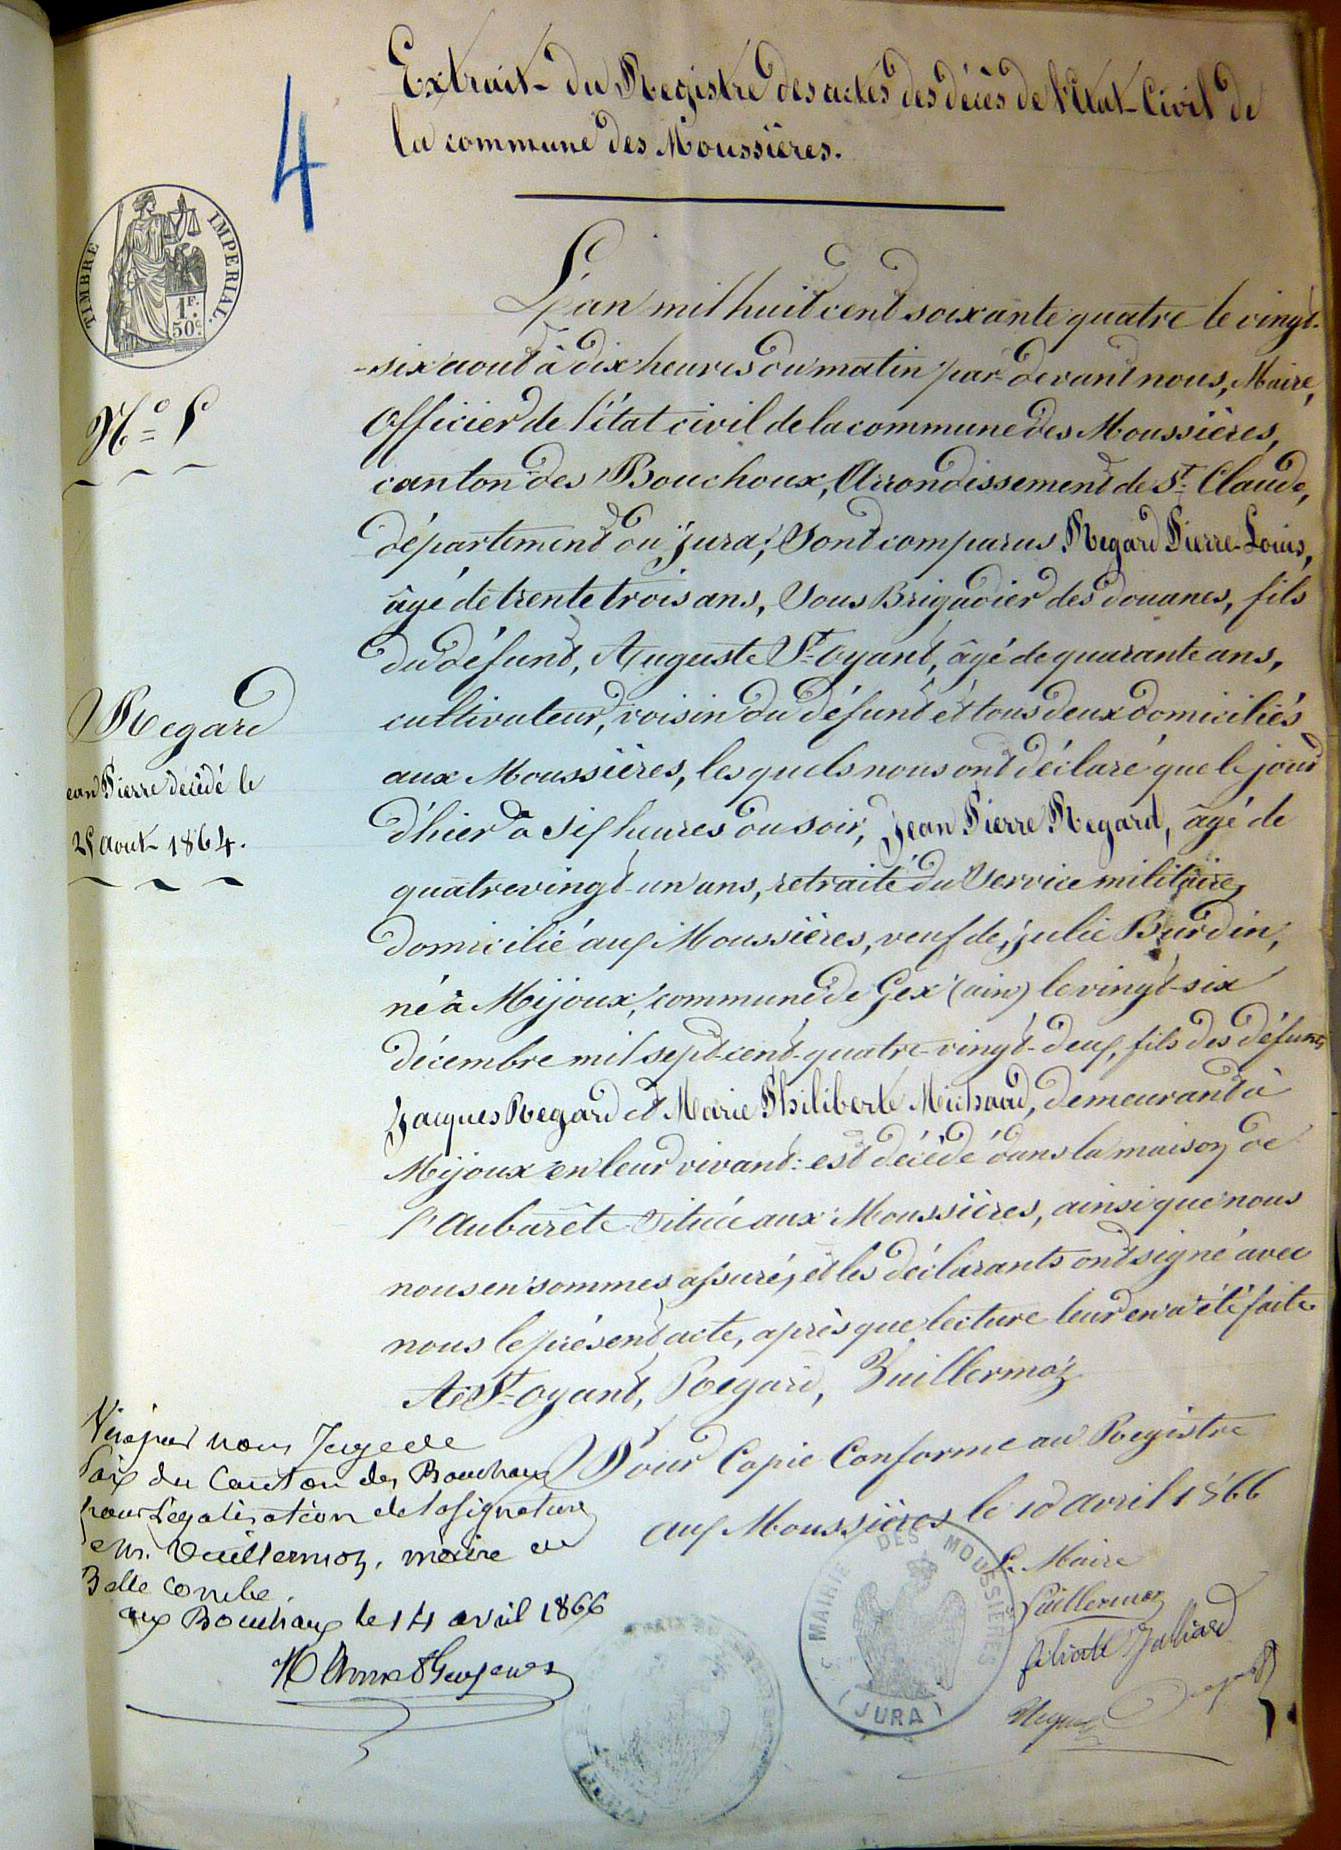 4
Extrait du Registre des actes des décès de l'Etat-Civil de
la commune des Moussières.
TIMBRE IMPERIAL.
1F.
50c.
L'an mil huit cent soixante quatre le vingt-
-six aout à dix heures du matin par devant nous, Maire,
Officier de l'état civil de la commune des Moussières,
canton des Bouchoux, Arrondissement de St. Claude,
département du jura; Sont comparus Regard Pierre-Louis,
âgé de trente trois ans, Sous Brigadier des douanes, fils
du défunt, Auguste St. Oyant, âgé de quarante ans,
cultivateur, voisin du défunt et tous deux domiciliés
aux Moussières, lesquels nous ont déclaré que le jour
d'hier à six heures du soir, Jean Pierre Regard, âgé de
quatre vingt-un ans, retraité du Service militaire,
domicilié aux Moussières, veuf de julie Burdin,
né à Mijoux, commune de Gex (ain) le vingt-six
décembre mil sept-cent-quatre-vingt-deux, fils des défunts
Jacques Regard et Marie Philiberte Michaud, demeurant à
Mijoux en leur vivant: est décédé dans la maison de
l'Aubarête Située aux Moussières, ainsi que nous
nous en sommes assuré, et les déclarants ont signé avec
nous le présent acte, après que lecture leur en a été faite
A. St. Oyant, Regard, Vuillermoz
Pour Copie Conforme au Registre
aux Moussières le 10 avril 1866
Le Maire
Vuillermoz
MAIRIE DES MOUSSIÈRES
(JURA)
No 5
Regard
Jean Pierre décédé le
25 Aout 1864.
Vu par nous Juge de
Paix du Canton des Bouchoux
pour Légalisation de la signature
Mr. Vuillermoz, maire de
Belle combe
aux Bouchoux le 14 avril 1866